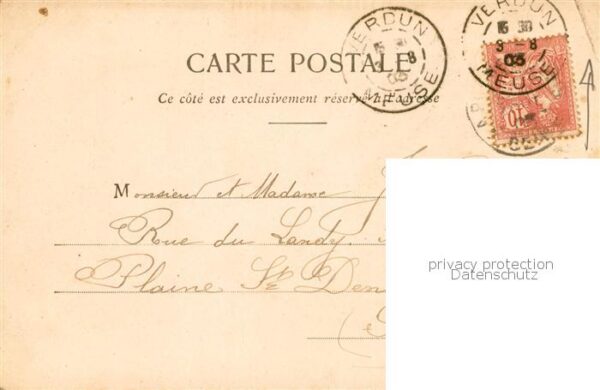 VERDUN
8
03
MEUSE
VERDUN
15 30
3 - 8
03
MEUSE
10
CARTE POSTALE
Ce côté est exclusivement réservé à l'adresse
Monsieur et Madame
Rue du Landy.
Plaine St Den
privacy protection
Datenschutz